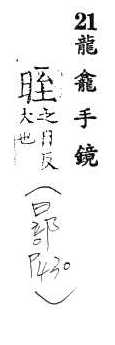 21龍龕手鏡
晊之日反大也（日部P430）